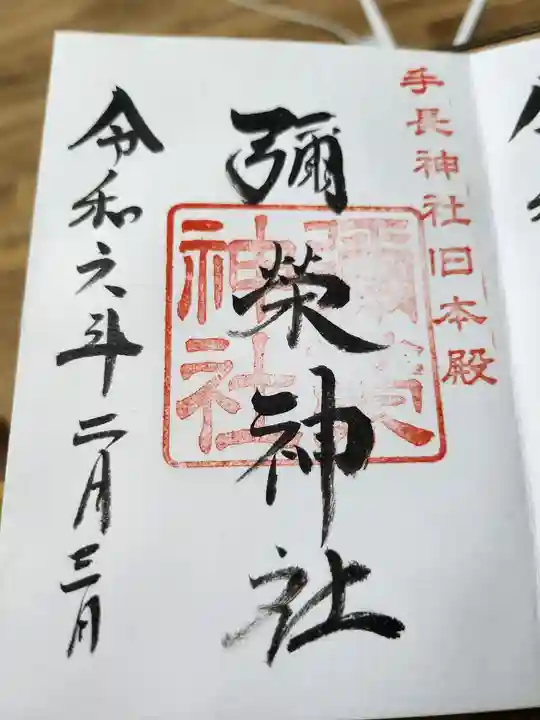 手長神社旧本殿
彌榮神社
彌榮神社
令和六年二月三日